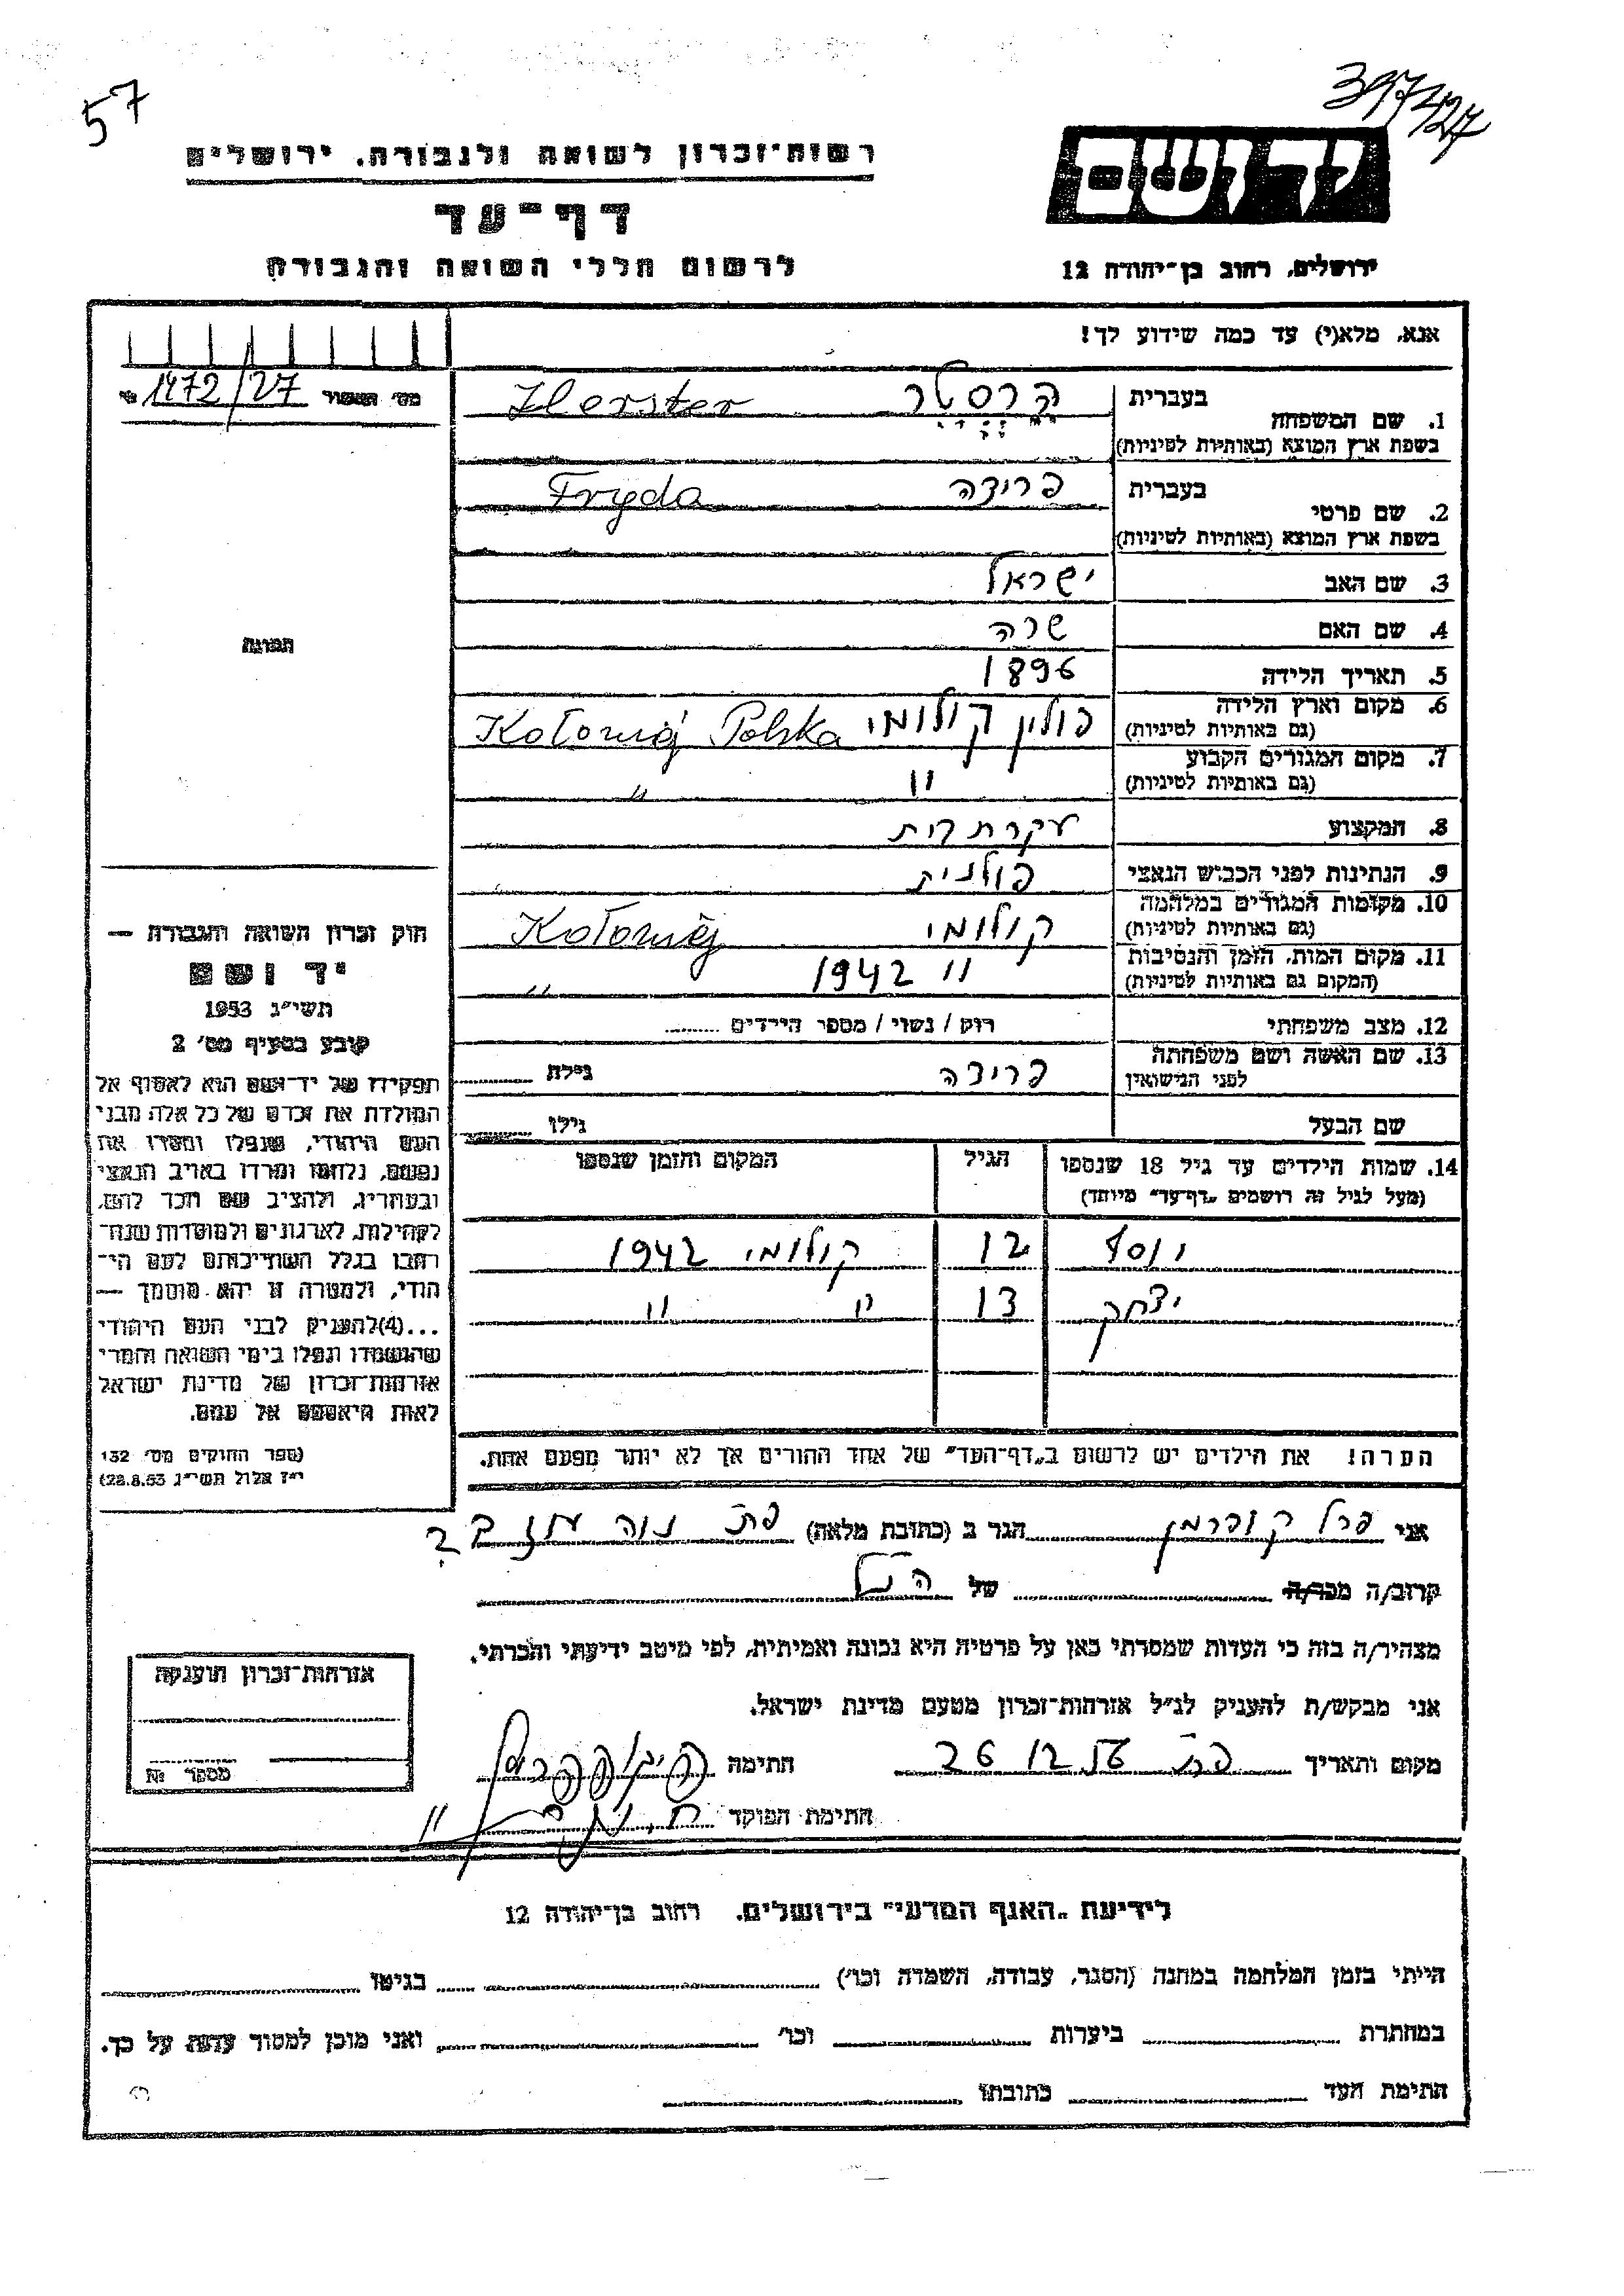 57
397427
רשות־זכרון לשואה ולגבורה, ירושלים
יד ושם
דף־עד
לרשום חללי השואה והגבורה
ירושלים, רחוב בן־יהודה 12
אנא, מלא(י) עד כמה שידוע לך!
1472/27
1. שם המשפחה בעברית הרסטר Herster
בשפת ארץ המוצא (באותיות לטיניות)
2. שם פרטי בעברית פרידה Fryda
בשפת ארץ המוצא (באותיות לטיניות)
3. שם האב ישראל
4. שם האם שרה
תמונה
5. תאריך הלידה 1896
6. מקום וארץ הלידה (גם באותיות לטיניות) פולין קולומי Kołomyj Polska
7. מקום המגורים הקבוע (גם באותיות לטיניות) " "
8. המקצוע עקרת בית
9. הנתינות לפני הכבוש הנאצי פולנית
10. מקומות המגורים במלחמה (גם באותיות לטיניות) קולומי Kołomyj
11. מקום המות, הזמן והנסיבות (המקום גם באותיות לטיניות) " 1942 "
12. מצב משפחתי רוק / נשוי / מספר הילדים
13. שם האשה ושם משפחתה לפני הנישואין פרידה גילה
שם הבעל גילו
14. שמות הילדים עד גיל 18 שנספו הגיל המקום והזמן שנספו
(מעל לגיל זה רושמים "דף־עד" מיוחד)
יוסף 12 קולומי 1942
יצחק 13 " "
הערה! את הילדים יש לרשום ב"דף־העד" של אחד ההורים אך לא יותר מפעם אחת.
חוק זכרון השואה והגבורה —
יד ושם
תשי"ג 1953
קובע בסעיף מס' 2
תפקידו של יד־ושם הוא לאסוף אל
המולדת את זכרם של כל אלה מבני
העם היהודי, שנפלו ומסרו את
נפשם, נלחמו ומרדו באויב הנאצי
ובעוזריו, ולהציב שם וזכר להם,
לקהילות, לארגונים ולמוסדות שנח־
רבו בגלל השתייכותם לעם הי־
הודי, ולמטרה זו יהא מוסמך —
...(4)להעניק לבני העם היהודי
שהושמדו ונפלו בימי השואה והמרי
אזרחות־זכרון של מדינת ישראל
לאות היאספם אל עמם.
(ספר החוקים מס' 132
י"ז אלול תשי"ג 28.8.53)
אני פרל קופרמן הגר ב (כתובת מלאה) פת נוה עוז
קרוב/ה מכר/ה של הנ"ל
מצהיר/ה בזה כי העדות שמסרתי כאן על פרטיה היא נכונה ואמיתית, לפי מיטב ידיעתי והכרתי.
אני מבקש/ת להעניק לנ"ל אזרחות־זכרון מטעם מדינת ישראל.
מקום ותאריך פת 26 12 56 חתימה
חתימת הפוקד
אזרחות־זכרון הוענקה
מספר №
לידיעת "האגף המדעי" בירושלים, רחוב בן־יהודה 12
הייתי בזמן המלחמה במחנה (הסגר, עבודה, השמדה וכו') בגיטו
במחתרת ביערות וכו' ואני מוכן למסור עדות על כך.
חתימת העד כתובתו